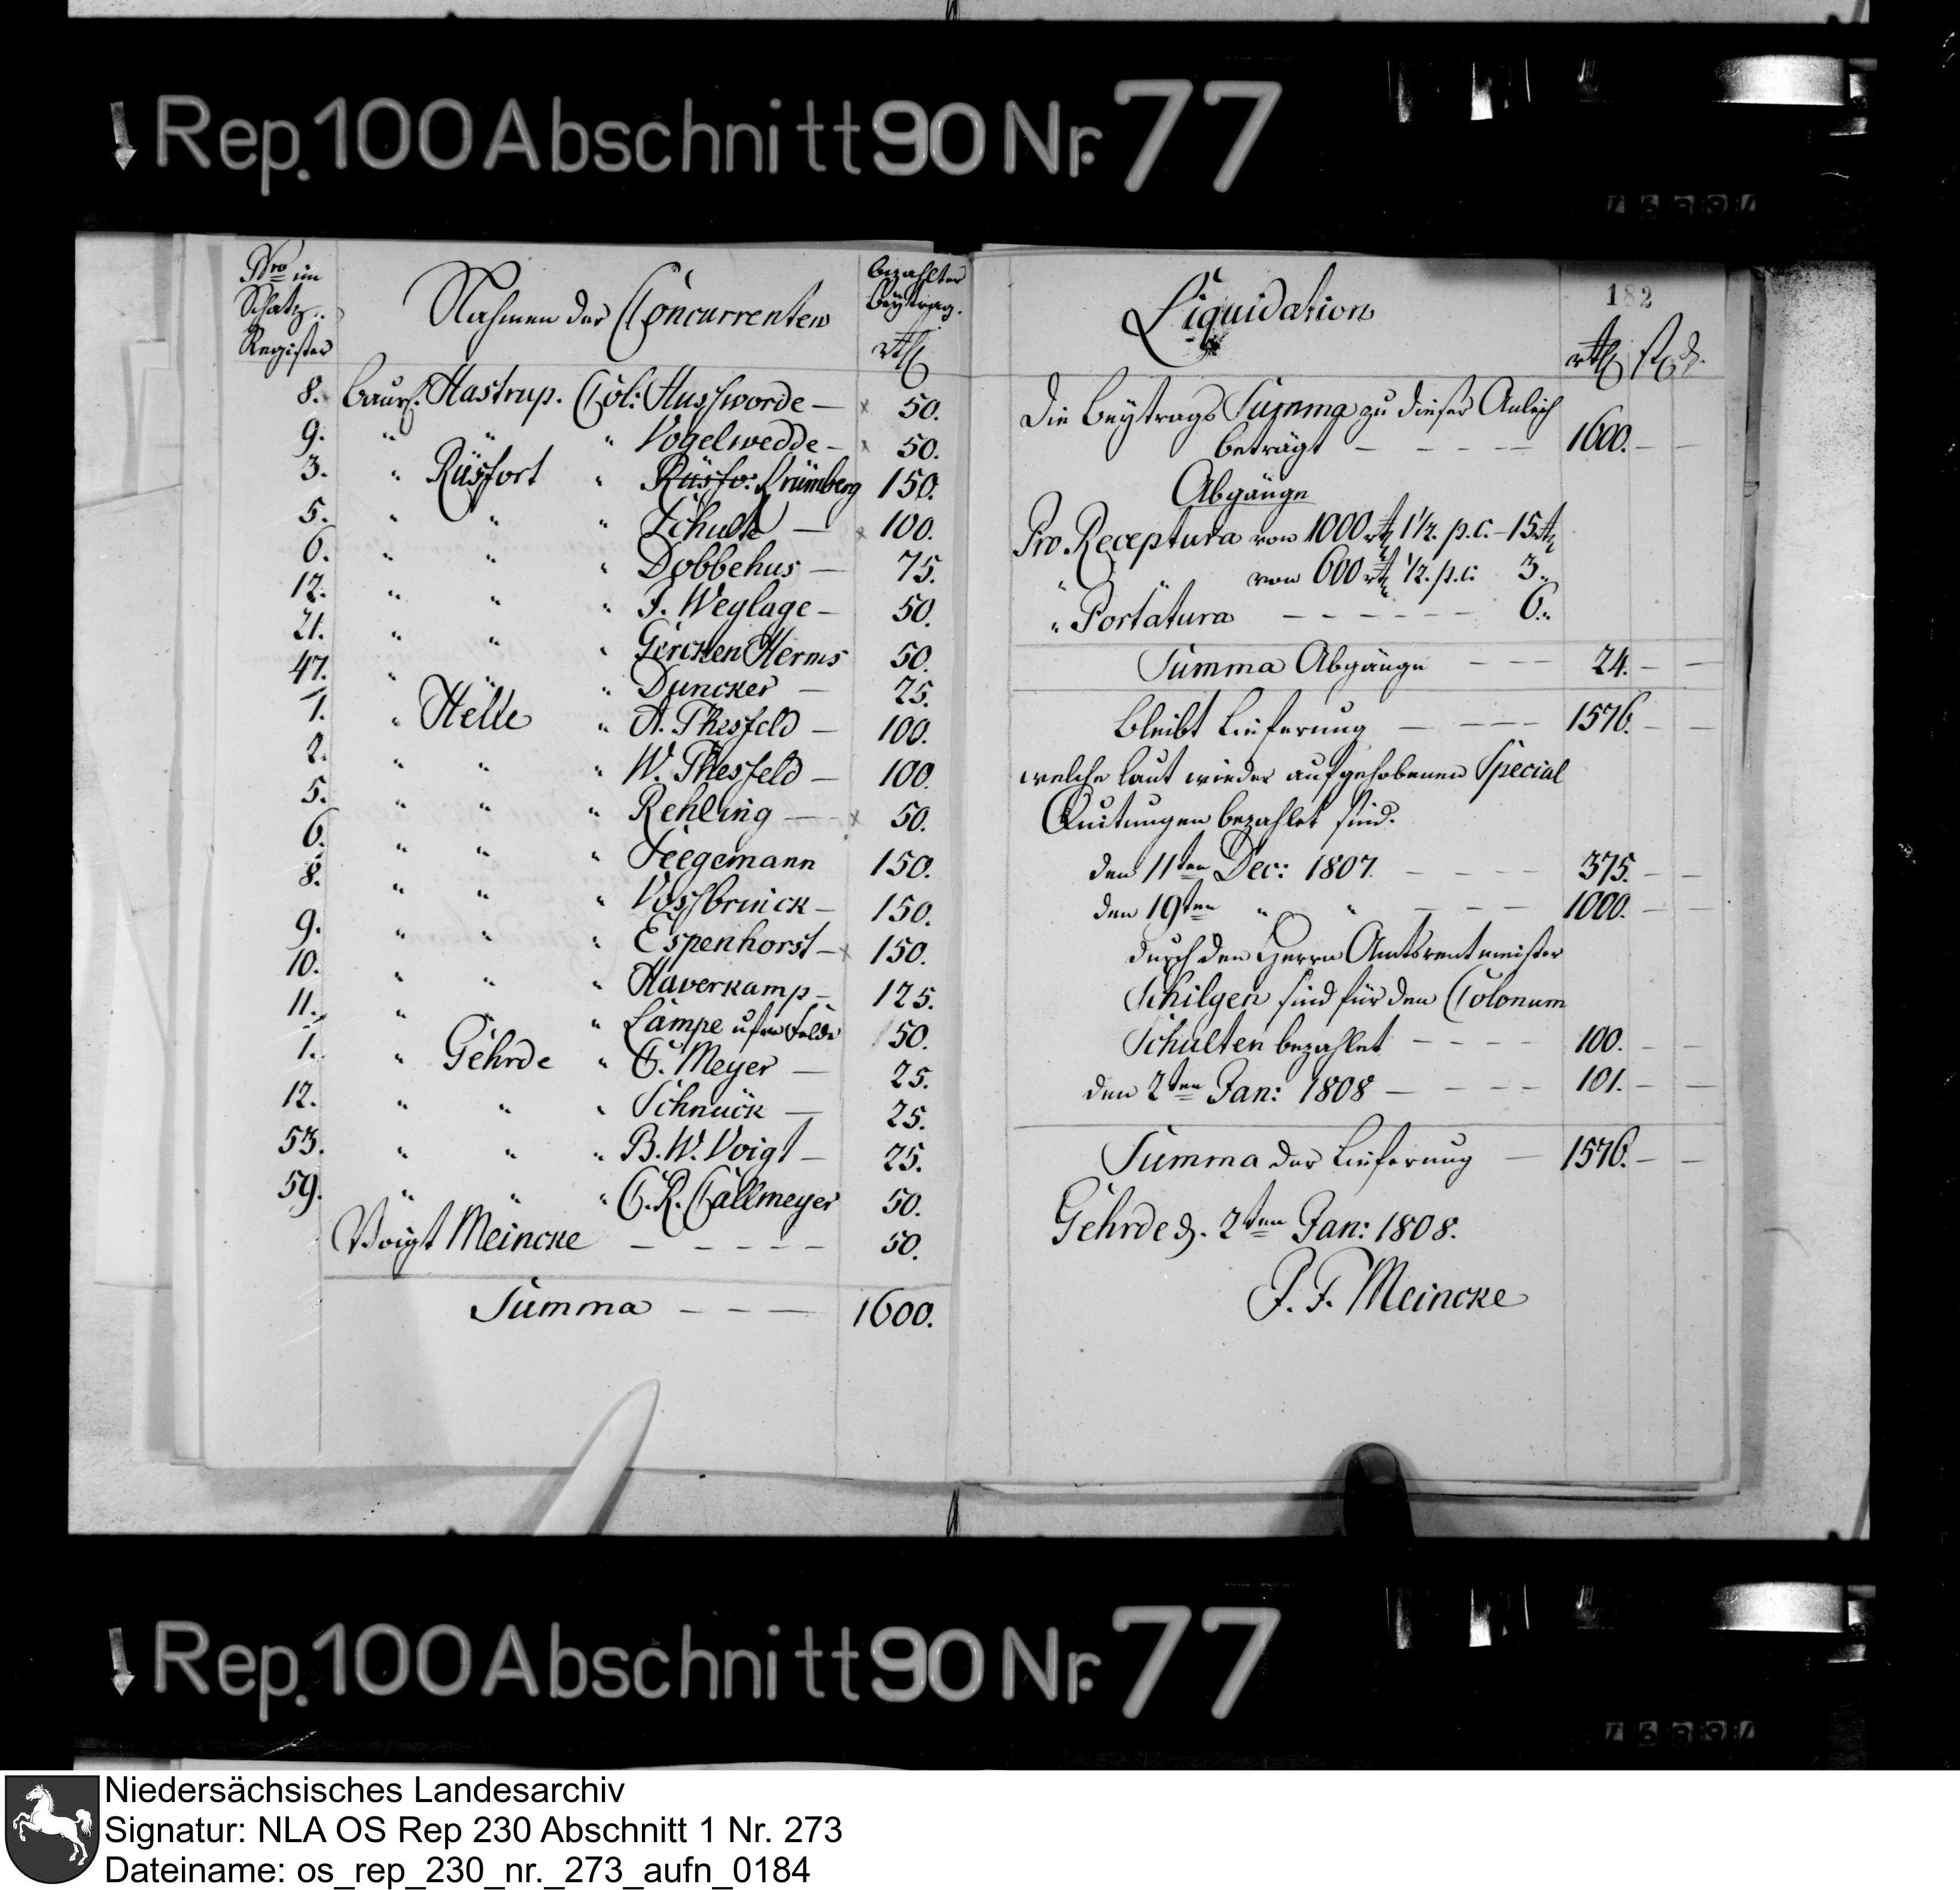 Rep. 100 Abschnitt 90 Nr. 77
Nro im
Schatz-
Register
Nahmen der Concurrenten
bezahlter
Beytrag.
rthl
8. Baursch. Hastrup. Col: Hussworde — 50.
9. " " " Vogelwedde — 50.
3. " Rüsfort " Rüsfo: Krümberg 150.
5. " " " Schulte — 100.
6. " " " Dobbehus — 75.
12. " " " J. Weylage — 50.
21. " " " Gercken Herms 50.
47. " " " Duncker — 25.
1. " Helle " A. Thesfeld — 100.
2. " " " W. Thesfeld — 100.
5. " " " Rehling — 50.
6. " " " Seegemann 150.
8. " " " Vossbrinck — 150.
9. " " " Espenhorst — 150.
10. " " " Haverkamp — 125.
11. " " " Lampe ufm Felde 50.
1. " Gehrde " C. Meyer — 25.
12. " " " Schnuck — 25.
53. " " " B. W. Voigt — 25.
59. " " " C. R. Callmeyer 50.
Voigt Meincke — — — — — 50.
Summa — — — 1600.
182
Liquidation
rthl ß d.
Die Beytrags Summa zu dieser Anleih
beträgt — — — — — 1600. — —
Abgänge
Pro Receptura von 1000 rt 1 1/2. p. c. — 15 rt
von 600 rt 1/2. p. c: 3 "
" Portatura — — — — — — 6. "
Summa Abgänge — — — 24. — —
Bleibt Lieferung — — — — 1576. — —
welche laut wieder aufgehobenen Special
Quitungen bezahlet sind.
den 11ten Dec: 1807. — — — — 375. — —
den 19ten " " — — — — 1000. — —
durch den Herrn Amtsrentmeister
Schilgen sind für den Colonum
Schulten bezahlet — — — — 100. — —
den 2ten Jan: 1808 — — — — 101. — —
Summa der Lieferung — 1576. — —
Gehrde d. 2ten Jan: 1808.
J. F. Meincke
Rep. 100 Abschnitt 90 Nr. 77
Niedersächsisches Landesarchiv
Signatur: NLA OS Rep 230 Abschnitt 1 Nr. 273
Dateiname: os_rep_230_nr._273_aufn_0184